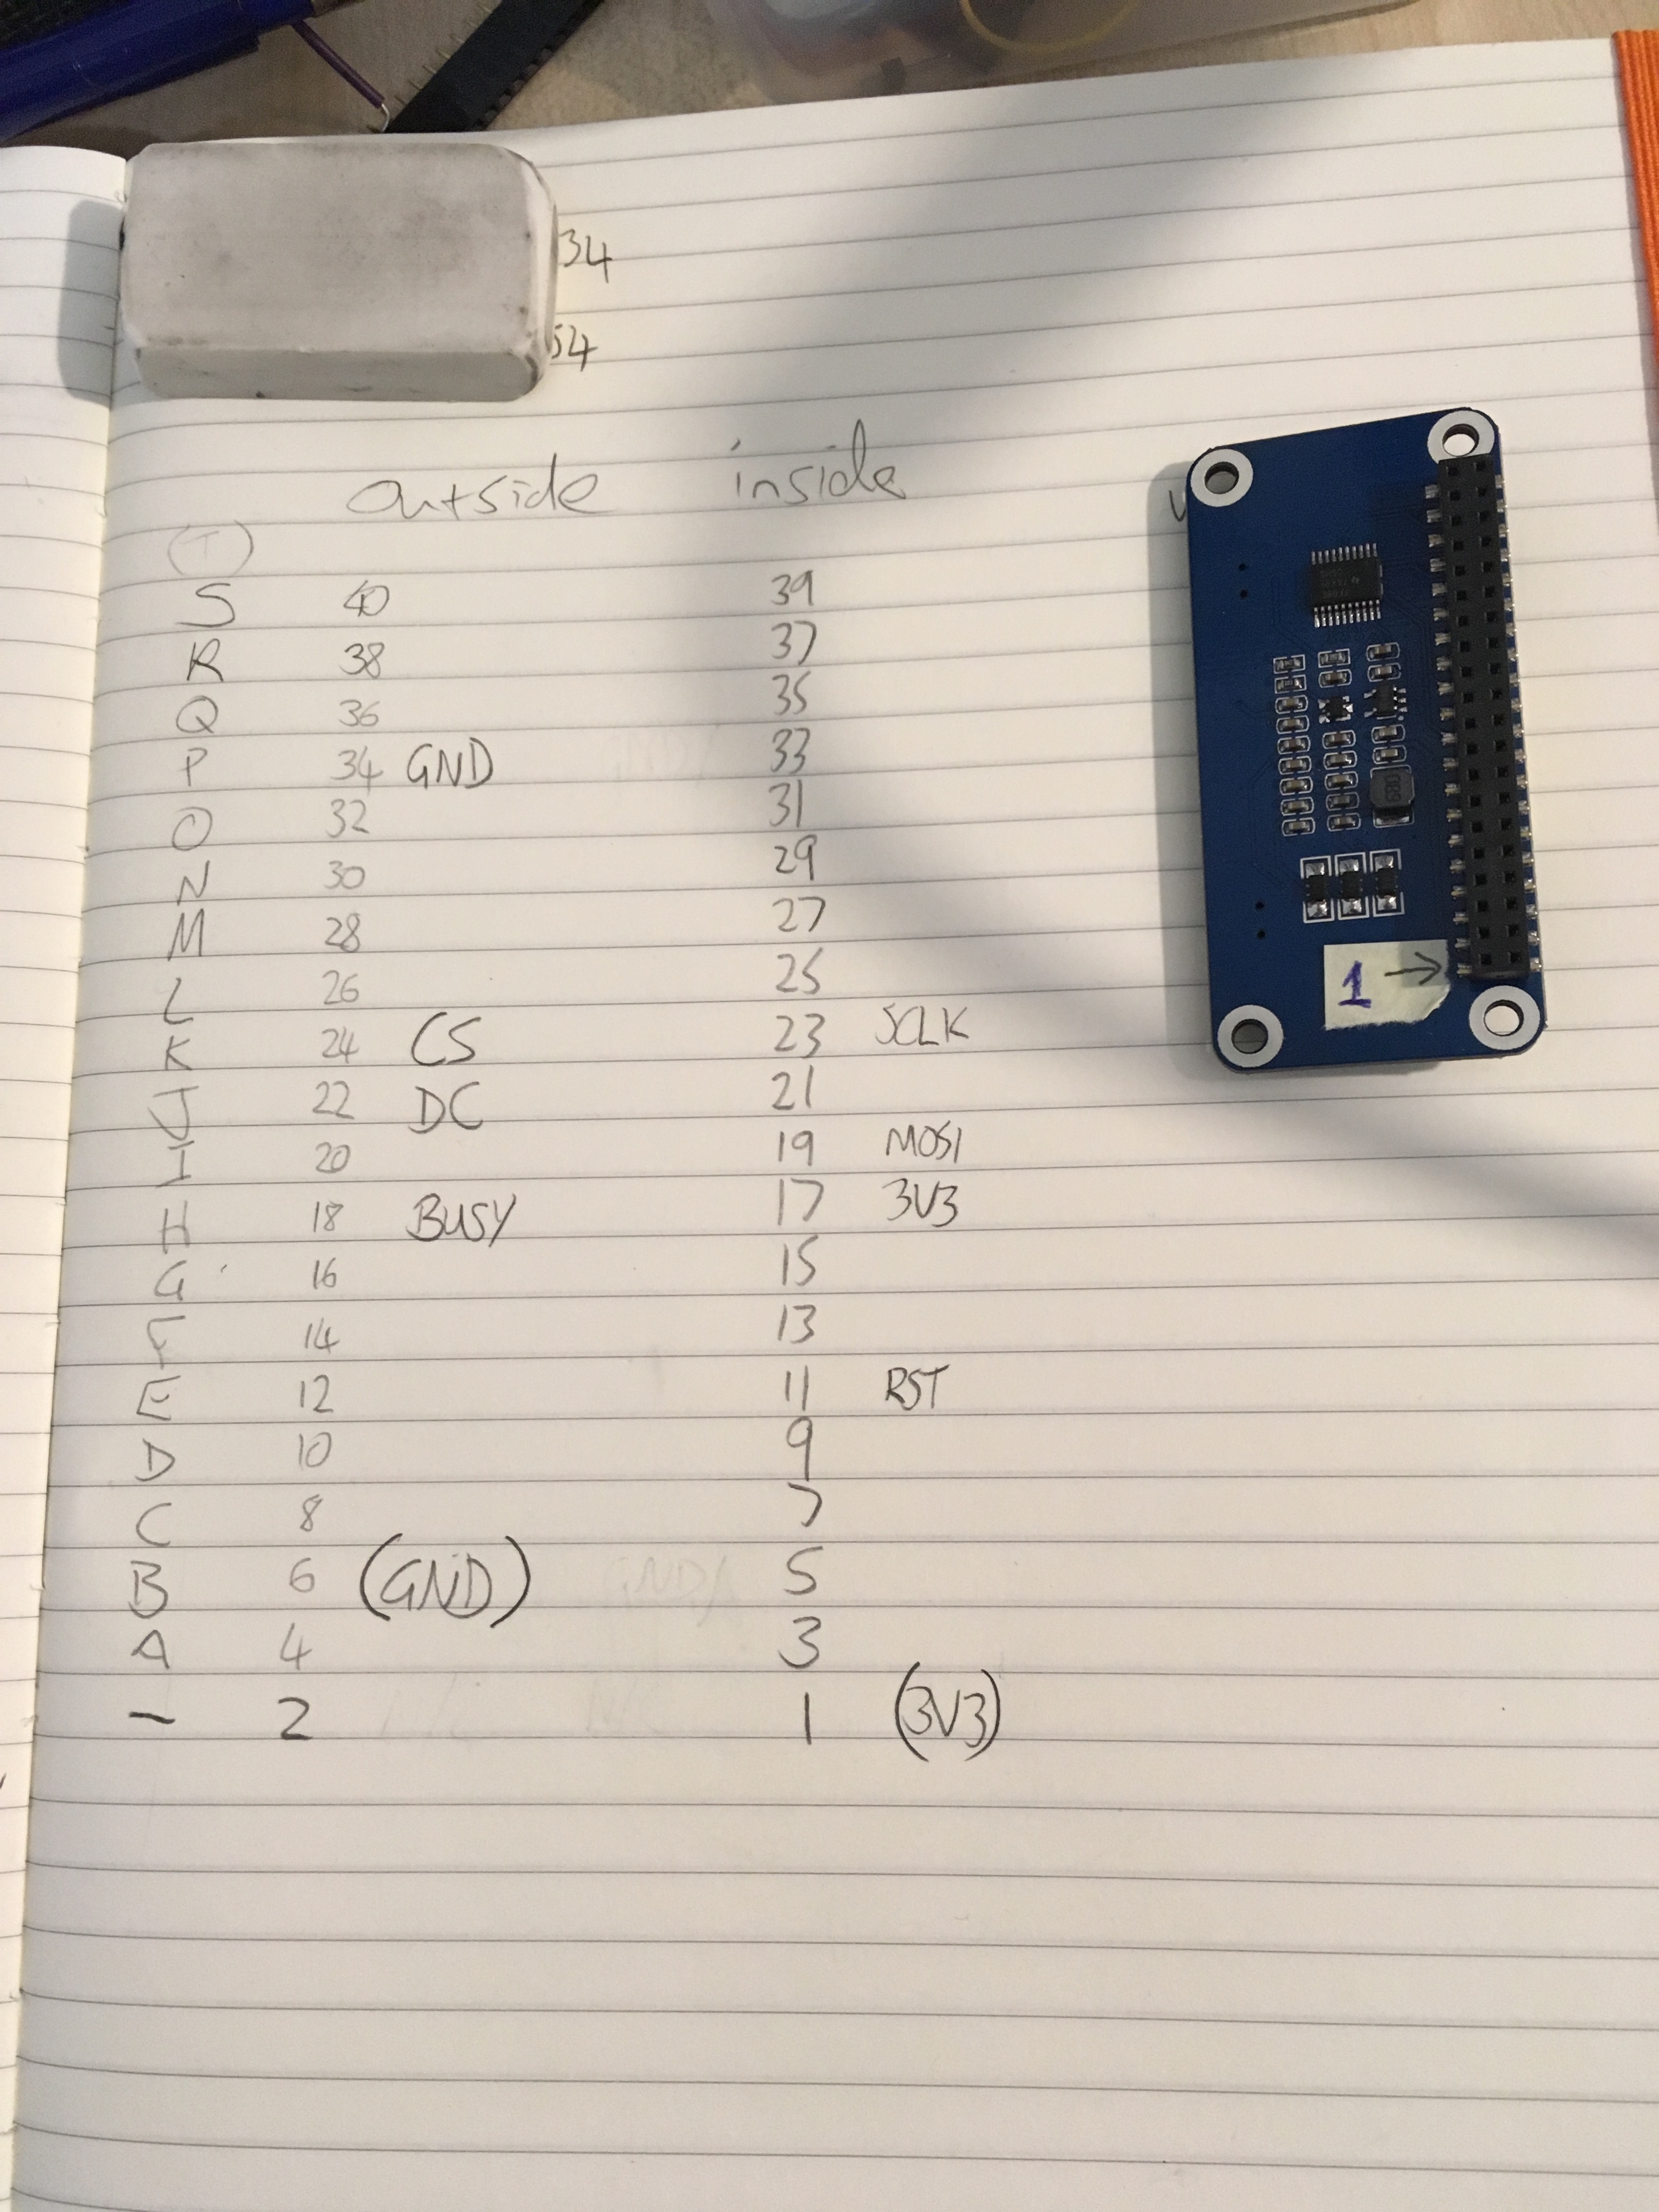 34
54
outside inside
(T)
S 40 39
R 38 37
Q 36 35
P 34 GND 33
O 32 31
N 30 29
M 28 27
L 26 25
K 24 CS 23 SCLK
J 22 DC 21
I 20 19 MOSI
H 18 BUSY 17 3V3
G 16 15
F 14 13
E 12 11 RST
D 10 9
C 8 7
B 6 (GND) 5
A 4 3
– 2 1 (3V3)
1 →
089